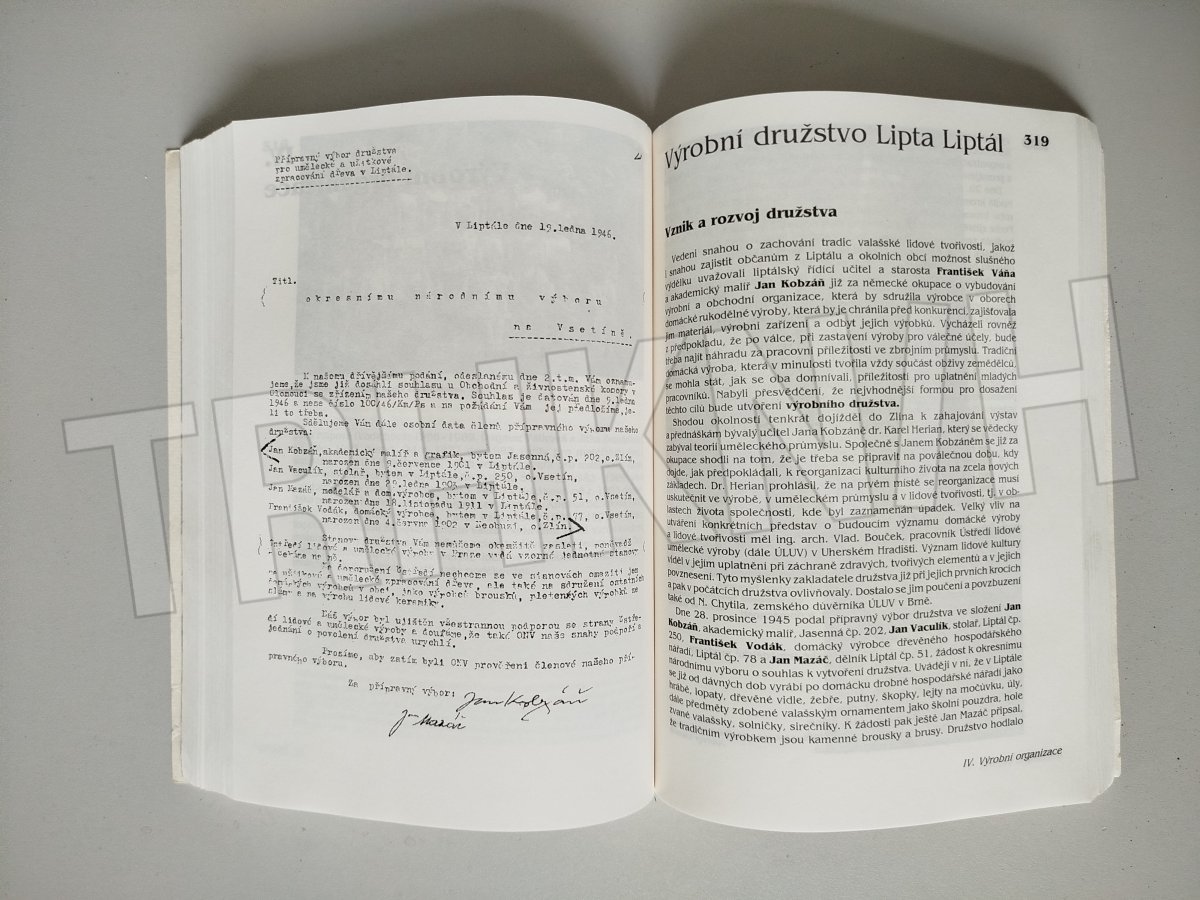 Přípravný výbor družstva
pro umělecké a užitkové
zpracování dřeva v Liptále.
V Liptále dne 19.ledna 1946.
Titl.
okresnímu národnímu výboru
na Vsetíně.
K našemu dřívějšímu podání, odeslanému dne 2.t.m. Vám oznamu-
jeme,že jsme již dosáhli souhlasu u Obchodní a živnostenské komory v
Olomouci se zřízením našeho družstva. Souhlas je datován dne 9.ledna
1946 a nese číslo 100/46/Km/Pa a na požádání Vám jej předložíme,je-
li to třeba.
Sdělujeme Vám dále osobní data členů přípravného výboru našeho
družstva:
Jan Kobzáň,akademický malíř a grafik, bytem Jasenná,č.p. 202,o.Zlín,
narozen dne 9.července 1901 v Liptále.
Jan Vaculík, stolař, bytem v Liptále,č.p. 250, o.Vsetín,
narozen dne 29.ledna 1903 v Liptále.
Jan Mazáč, modelář a dom.výrobce, bytom v Liptále,č.p. 51, o.Vsetín,
narozen dne 18.listopadu 1911 v Liptále.
František Vodák, domácký výrobce, bytem v Liptále,č.p. 77, o.Vsetín,
narozen dne 4.června 1902 v o.Zlín.
Stanovy družstva Vám nemůžeme okamžitě zaslati, poněvadž
Ústředí lidové a umělecké výroby v Praze vydá vzorné jednotné stanovy
a čekáme na ně.
Na doporučení Ústředí nechceme se ve stanovách omeziti jen
na užitkové a umělecké zpracování dřeva, ale také na sdružení ostatních
výrobců v obci, jako výrobců brousků, pletených výrobků ze
slámy a na výrobu lidové keramiky.
Náš výbor byl ujištěn všestrannou podporou se strany Ústře-
dí lidové a umělecké výroby a doufáme,že také ONV naše snahy podpoří a
jednání o povolení družstva urychlí.
Prosíme, aby zatím byli ONV prověřeni členové našeho pří-
pravného výboru.
Za přípravný výbor: Jan Kobzáň
Jan Mazáč
Výrobní družstvo Lipta Liptál 319
Vznik a rozvoj družstva
Vedeni snahou o zachování tradic valašské lidové tvořivosti, jakož
i snahou zajistit občanům z Liptálu a okolních obcí možnost slušného
výdělku uvažovali liptálský řídící učitel a starosta František Váňa
a akademický malíř Jan Kobzáň již za německé okupace o vybudování
výrobní a obchodní organizace, která by sdružila výrobce v oborech
domácké rukodělné výroby, která by je chránila před konkurencí, zajišťovala
jim materiál, výrobní zařízení a odbyt jejich výrobků. Vycházeli rovněž
z předpokladu, že po válce, při zastavení výroby pro válečné účely, bude
třeba najít náhradu za pracovní příležitosti ve zbrojním průmyslu. Tradiční
domácká výroba, která v minulosti tvořila vždy součást obživy zemědělců,
se mohla stát, jak se oba domnívali, příležitostí pro uplatnění mladých
pracovníků. Nabyli přesvědčení, že nejvhodnější formou pro dosažení
těchto cílů bude utvoření výrobního družstva.
Shodou okolností tenkrát dojížděl do Zlína k zahajování výstav
a přednáškám bývalý učitel Jana Kobzáně dr. Karel Herian, který se vědecky
zabýval teorií uměleckého průmyslu. Společně s Janem Kobzáněm se již za
okupace shodli na tom, že je třeba se připravit na poválečnou dobu, kdy
dojde, jak předpokládali, k reorganizaci kulturního života na zcela nových
základech. Dr. Herian prohlásil, že na prvém místě se reorganizace musí
uskutečnit ve výrobě, v uměleckém průmyslu a v lidové tvořivosti, tj. v ob-
lastech života společnosti, kde byl zaznamenán úpadek. Velký vliv na
utváření konkrétních představ o budoucím významu domácké výroby
a lidové tvořivosti měl ing. arch. Vlad. Bouček, pracovník Ústředí lidové
umělecké výroby (dále ÚLUV) v Uherském Hradišti. Význam lidové kultury
viděl v jejím uplatnění při záchraně zdravých, tvořivých elementů a v jejich
povznesení. Tyto myšlenky zakladatele družstva již při jejich prvních krocích
a pak v počátcích družstva ovlivňovaly. Dostalo se jim poučení a povzbuzení
také od N. Chytila, zemského důvěrníka ÚLUV v Brně.
Dne 28. prosince 1945 podal přípravný výbor družstva ve složení Jan
Kobzáň, akademický malíř, Jasenná čp. 202, Jan Vaculík, stolař, Liptál čp.
250, František Vodák, domácký výrobce dřevěného hospodářského
nářadí, Liptál čp. 78 a Jan Mazáč, dělník Liptál čp. 51, žádost k okresnímu
národnímu výboru o souhlas k vytvoření družstva. Uvádějí v ní, že v Liptále
se již od dávných dob vyrábí po domácku drobné hospodářské nářadí jako
hrábě, lopaty, dřevěné vidle, žebře, putny, škopky, lejty na močůvku, úly,
dále předměty zdobené valašským ornamentem jako školní pouzdra, hole
zvané valašsky, solničky, sirečníky. K žádosti pak ještě Jan Mazáč připsal,
že tradičním výrobkem jsou kamenné brousky a brusy. Družstvo hodlalo
IV. Výrobní organizace
TRHKNIH